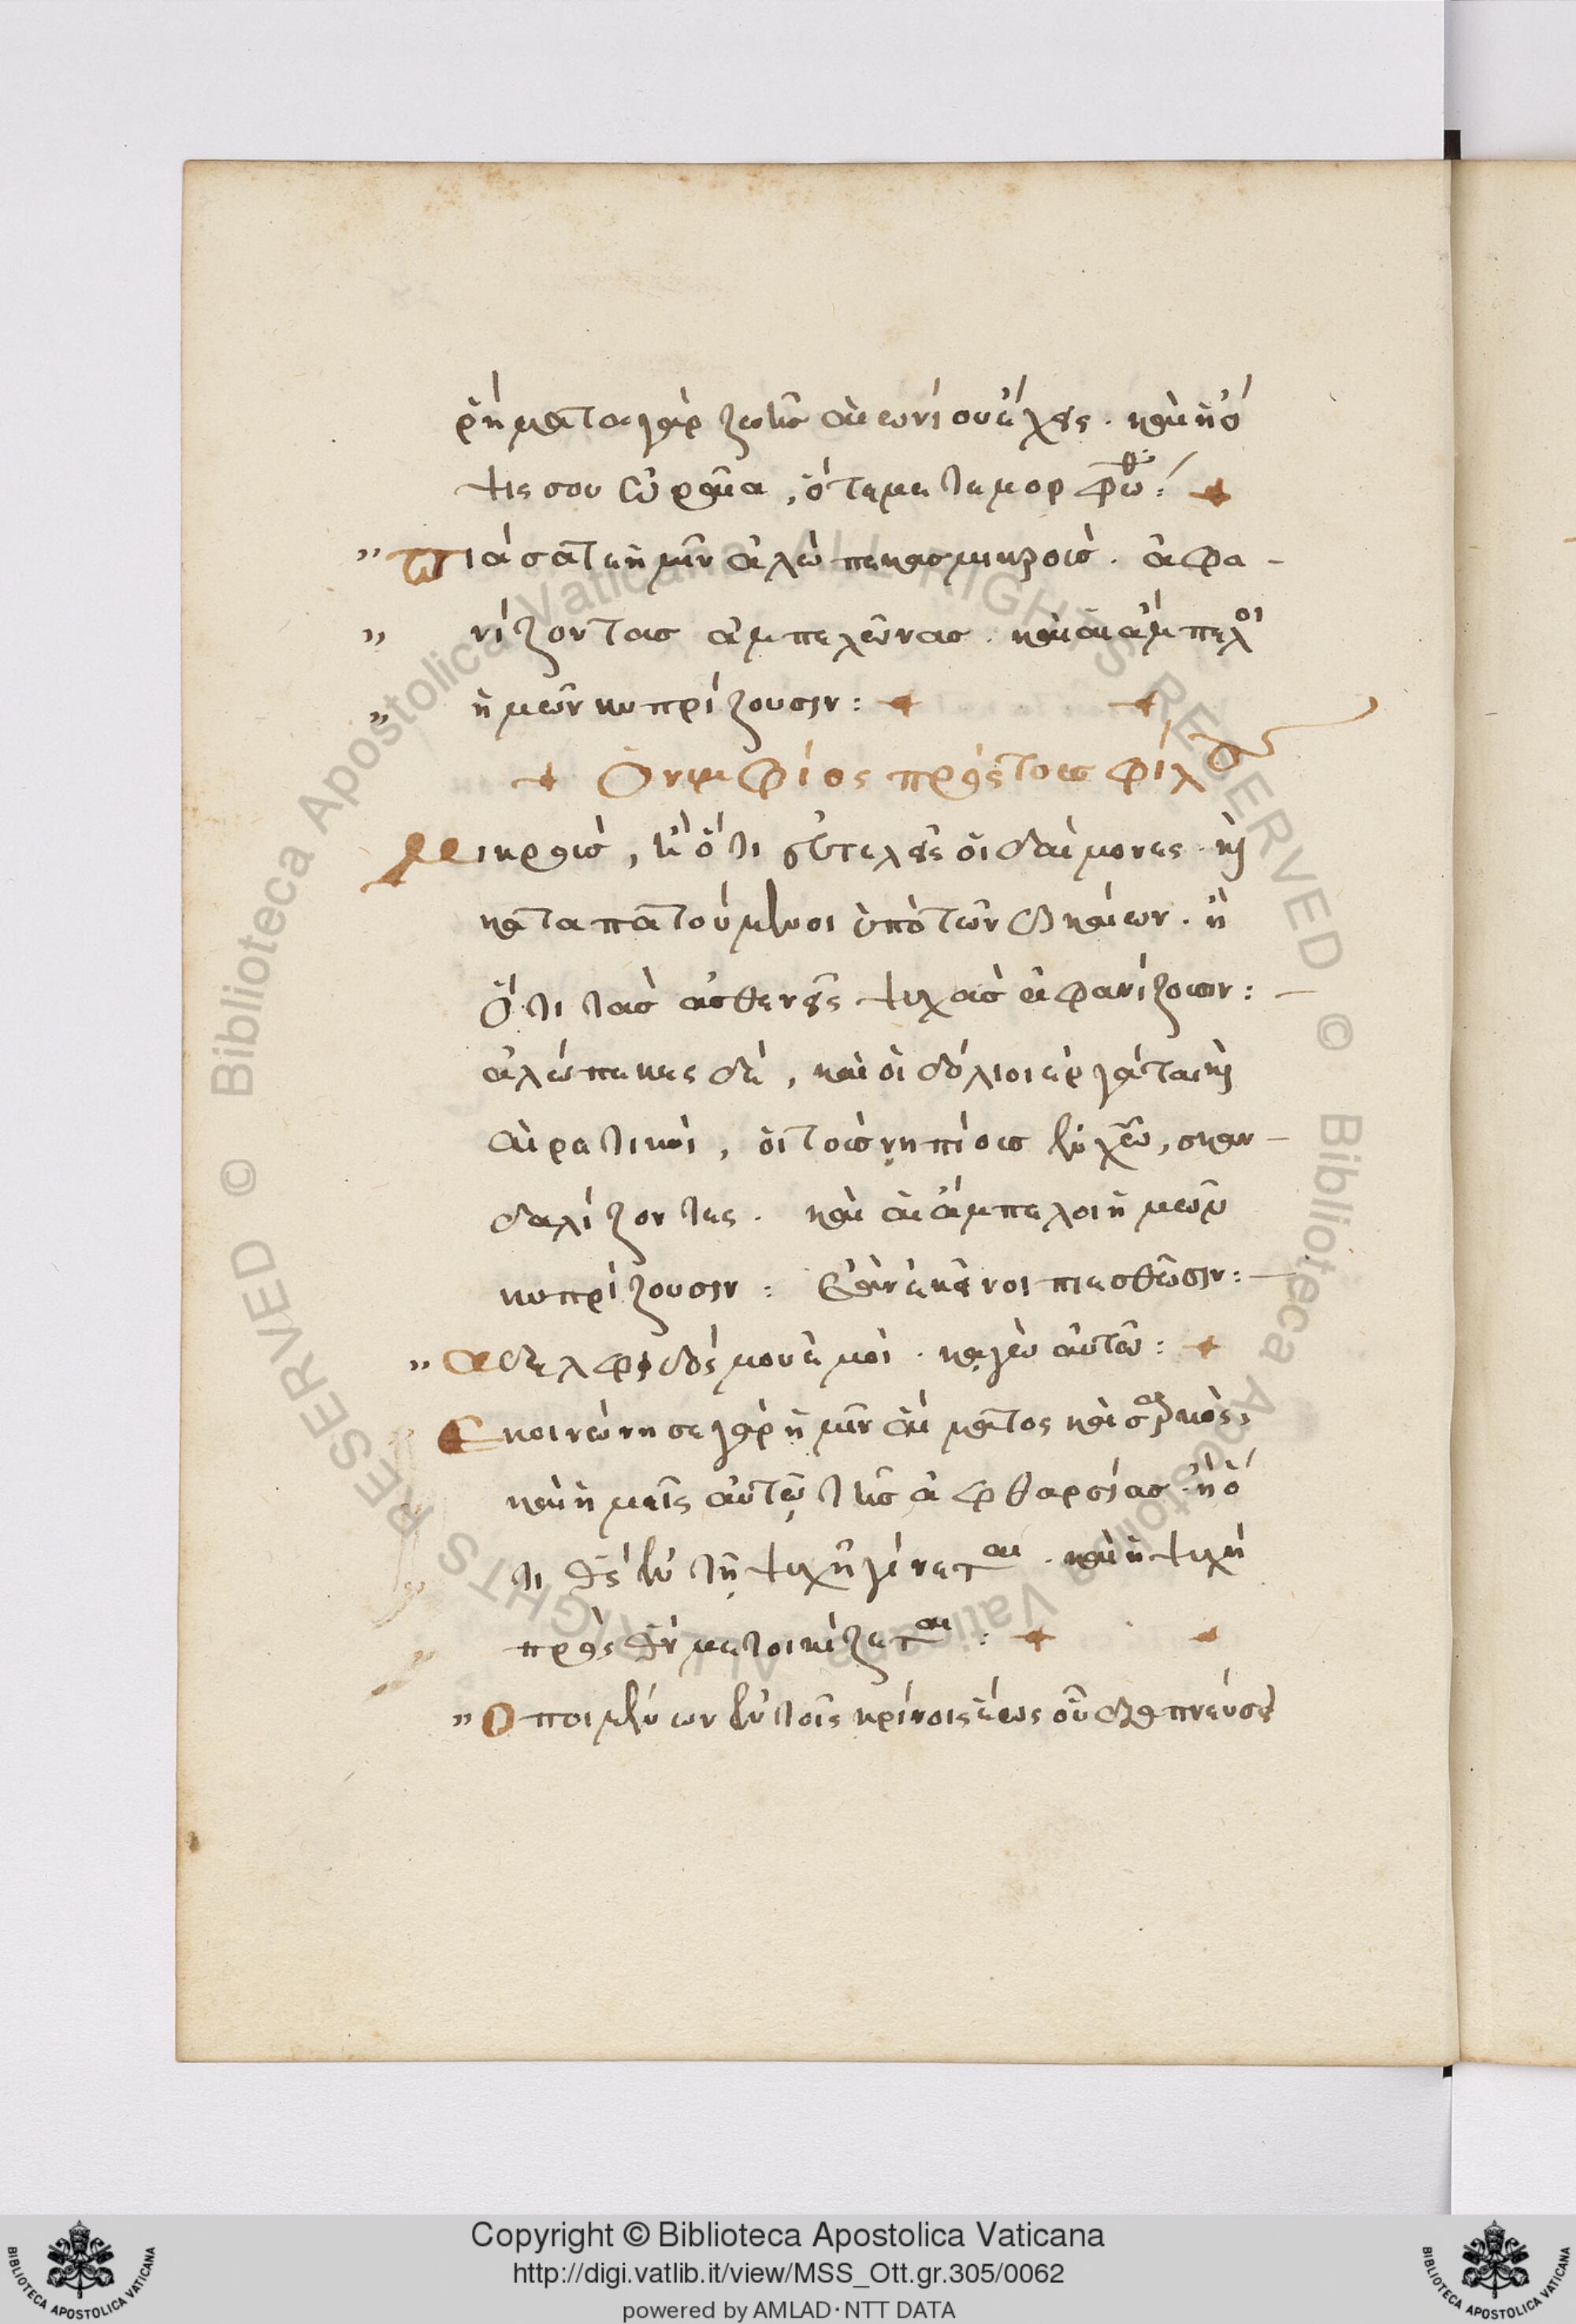 ῥήματα γὰρ ζωῆς αἰωνίου ἔχεις. καὶ ἡ ὄ
ψις σου ὡραῖα, ὅτε μετεμορφώθης:
" Πιάσατε ἡμῖν ἀλώπεκας μικροὺς. ἀφα-
" νίζοντας ἀμπελῶνας. καὶ αἱ ἄμπελοι
" ἡμῶν κυπρίζουσιν:
Ὁ νυμφίος πρὸς τοὺς φίλους
Μικροὺς, ἢ ὅτι εὐτελεῖς οἱ δαίμονες. καὶ
καταπατούμενοι ὑπὸ τῶν δικαίων. ἢ
ὅτι τὰς ἀσθενεῖς ψυχὰς ἀφανίζουσιν:
ἀλώπεκες δὲ, καὶ οἱ δόλιοι ἐργάται καὶ
αἱρετικοὶ, οἱ τοὺς νηπίους ἐν χῶ, σκαν-
δαλίζοντες. καὶ αἱ ἄμπελοι ἡμῶν
κυπρίζουσιν: Ἐὰν ἐκεῖνοι πιεσθῶσιν:
" Αδελφιδός μου ἐμοὶ. καγὼ αὐτῶ:
Εκοινώνησε γὰρ ἡμῖν αἵματος καὶ σαρκὸς,
καὶ ἡμεῖς αὐτῷ τῆς ἀφθαρσίας. ἢ ὅ
τι θς ἐν τῇ ψυχῆ γίνεται. καὶ ἡ ψυχὴ
πρὸς θν μετοικίζεται:
" Ο ποιμένων ἐν τοῖς κρίνοις ἕως οὗ διαπνεύσει
Copyright © Biblioteca Apostolica Vaticana
http://digi.vatlib.it/view/MSS_Ott.gr.305/0062
powered by AMLAD·NTT DATA
BIBLIOTECA APOSTOLICA VATICANA
BIBLIOTECA APOSTOLICA VATICANA
© Biblioteca Apostolica Vaticana ALL RIGHTS RESERVED
© Biblioteca Apostolica Vaticana ALL RIGHTS RESERVED